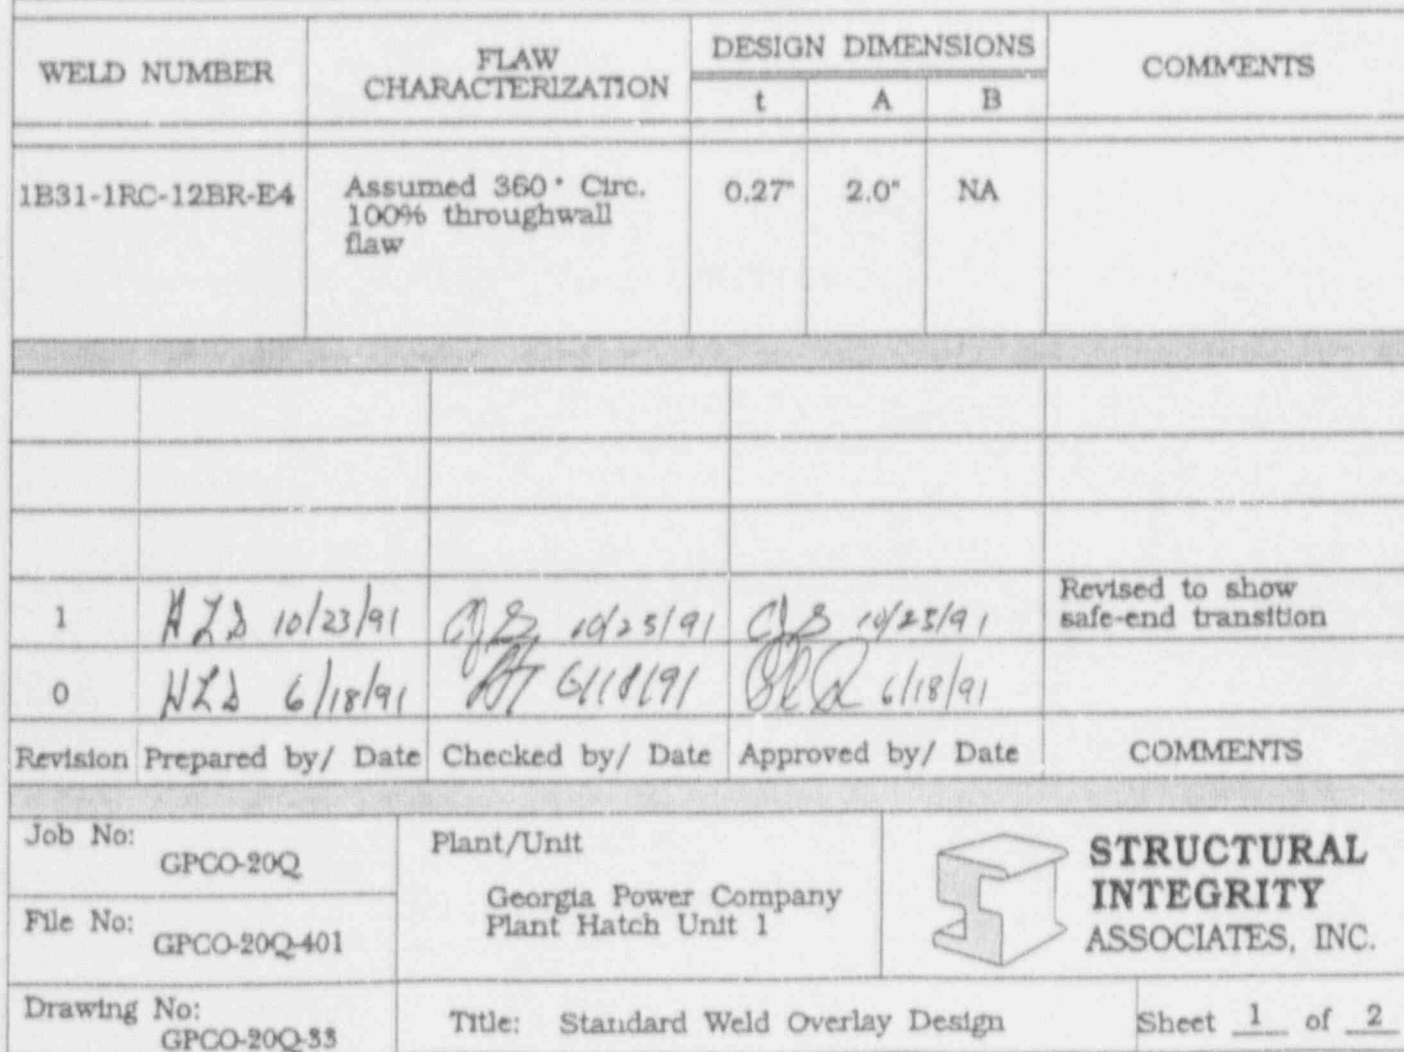 WELD NUMBER
FLAW
CHARACTERIZATION
DESIGN DIMENSIONS
t A B
COMMENTS
1B31-1RC-12BR-E4
Assumed 360° Circ.
100% throughwall
flaw
0.27" 2.0" NA
1 HLG 10/23/91 CJS 10/25/91 CJS 10/25/91
Revised to show
safe-end transition
0 6/18/91 6/18/91 6/18/91
Revision Prepared by/ Date Checked by/ Date Approved by/ Date COMMENTS
Job No:
GPCO-20Q
File No:
GPCO-20Q-401
Drawing No:
GPCO-20Q-33
Plant/Unit
Georgia Power Company
Plant Hatch Unit 1
STRUCTURAL
INTEGRITY
ASSOCIATES, INC.
Title: Standard Weld Overlay Design
Sheet 1 of 2